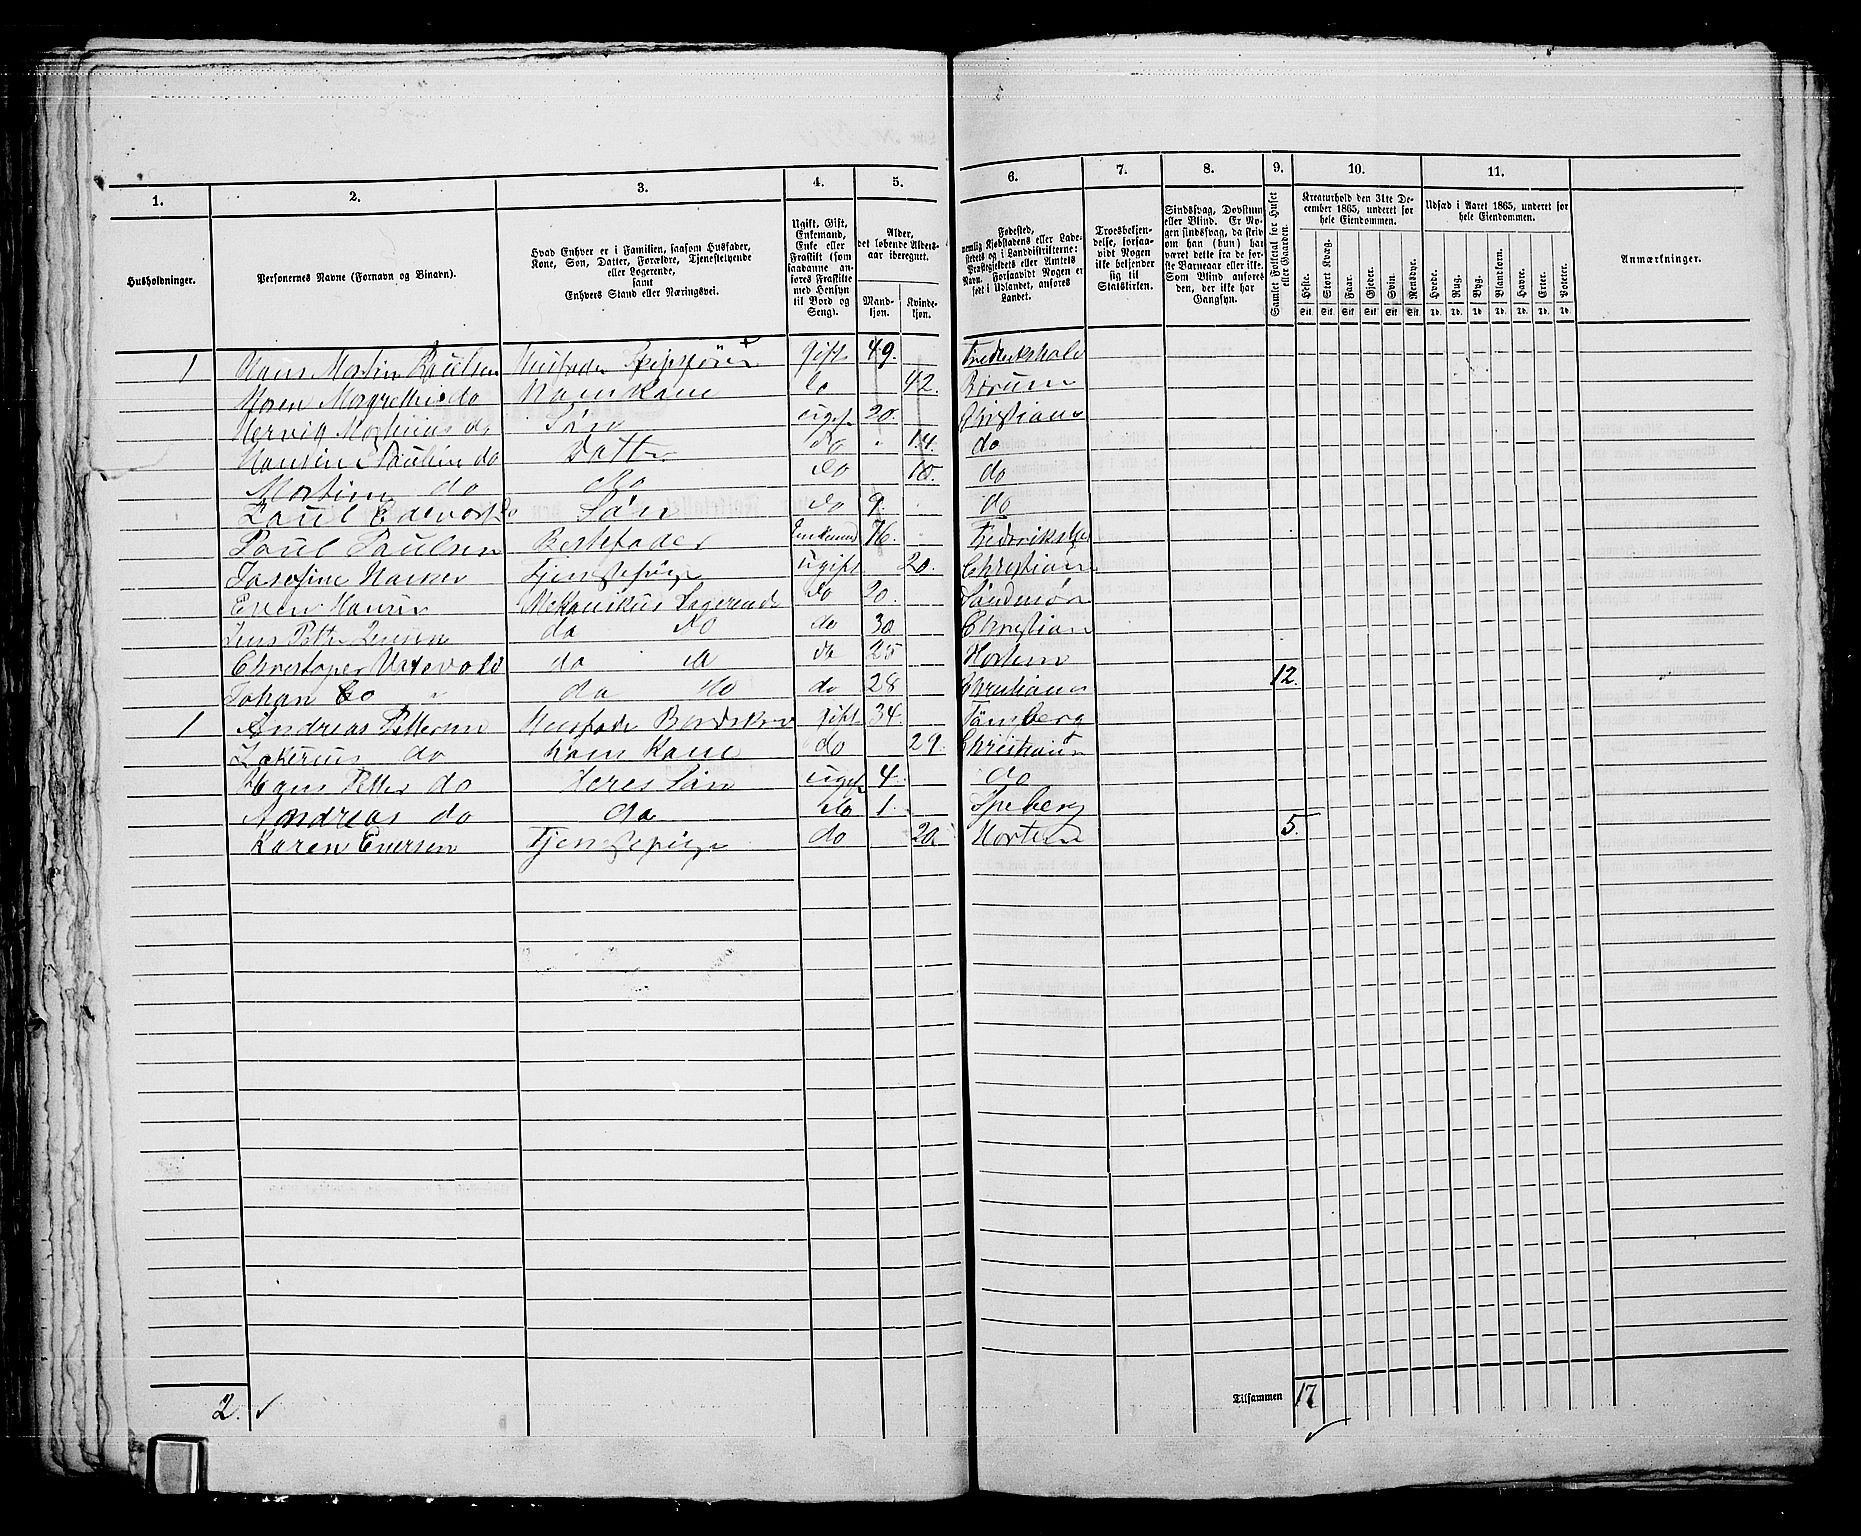 1. 2. 3. 4. 5. 6. 7. 8. 9. 10. 11.
Husholdninger.
Personernes Navne (Fornavn og Binavn).
Hvad Enhver er i Familien, saasom Husfader, Kone, Søn, Datter, Forældre, Tjenestetyende eller Logerende, samt Enhvers Stand eller Næringsvei.
Ugift, Gift, Enkemand, Enke eller Fraskilt (som saadanne anføres Fraskilte med Hensyn til Bord og Seng).
Alder, det løbende Alders-aar iberegnet.
Mand-kjøn. Kvinde-kjøn.
Fødested, nemlig Kjøbstadens eller Ladestedets og i Landdistrikterne: Præstegjeldets eller Amtets Navn. Forsaavidt Nogen er født i Udlandet, anføres Landet.
Troesbekjendelse, forsaavidt Nogen ikke bekjender sig til Statskirken.
Sindssvag, Døvstum eller Blind. Er Nogen sindssvag, da skriv om han (hun) har været dette fra de første Barneaar eller ikke. Som Blind anføres den, der ikke har Gangsyn.
Samlet Folketal for Huset eller Gaarden.
Kreaturhold den 31te December 1865, underet for hele Eiendommen.
Heste. Stort Kvæg. Faar. Gjeder. Svin. Rensdyr.
Stk. Stk. Stk. Stk. Stk. Stk.
Udsæd i Aaret 1865, underet for hele Eiendommen.
Hvede. Rug. Byg. Blandkorn. Havre. Erter. Poteter.
Td. Td. Td. Td. Td. Td. Td.
Anmærkninger.
1 Hans Martin Paulsen Husfader Skipsfører gift 49. Fredrikshald
Maren Margrethe do Hans Kone do 42. Bærum
Martinus do Søn ugift 20. Christiana
Paulin do Datter do 14. do
do do do 10. do
Paul Edevart do Søn do 9. do
Poul Paulsen Bestefader Enkemand 76. Fredriksha
Josefine Tjenestepige ugift 20. Christian
Hansen Mekanikus Logerende do 20. Søndmør
Jens Petter Jensen do do do 30 Christian
Christoper do do do 25 Horten
Johan do do do 28 Christiana 12.
1 Andreas Pettersen Husfader gift 34. Tønsberg
do Hans Kone do 29. Christian
Petter do Deres Søn ugift 4. do
Andreas do do do 1.
Karen Eversen Tjenestepige do 20. Horten 5.
2. Tilsammen 17